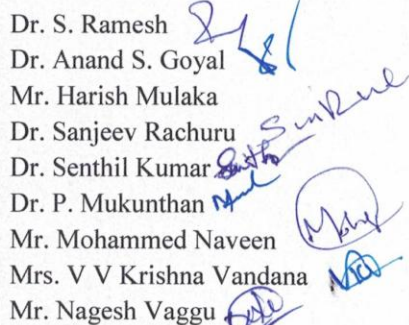 Dr. S. Ramesh
Dr. Anand S. Goyal
Mr. Harish Mulaka
Dr. Sanjeev Rachuru
Dr. Senthil Kumar
Dr. P. Mukunthan
Mr. Mohammed Naveen
Mrs. V V Krishna Vandana
Mr. Nagesh Vaggu